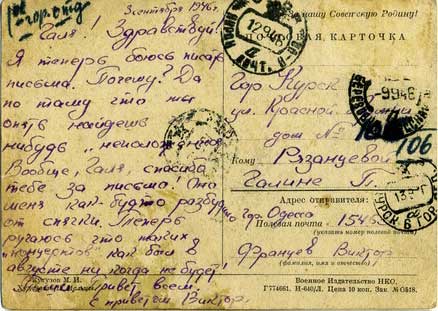 1ое гор. отд
3 сентября 1946 г.
Галя! Здравствуй!
Я теперь боюсь писать
письма. Почему? Да
по тому что ты
опять найдешь
нибудь
Вообще, Галя, спасибо
тебе за письма. Они
меня как-будто разбуди
от спячки. Теперь
ручаюсь что таких
"концертов" как был в
августе ни когда не будет.
Привет всем.
С приветом Виктор.
нашу Советскую Родину!
ПОЧТОВАЯ КАРТОЧКА
гор Курск
ул. Красной
дом №
106
Кому Рязанцевой
Галине П.
Адрес отправителя:
гор. Одесса
Полевая почта 
(указать номер полевой почты)
Францев Виктор
(фамилия, имя и отчество)
М. И.
Военное Издательство НКО.
Г774661. Цена 10 коп. Зак.